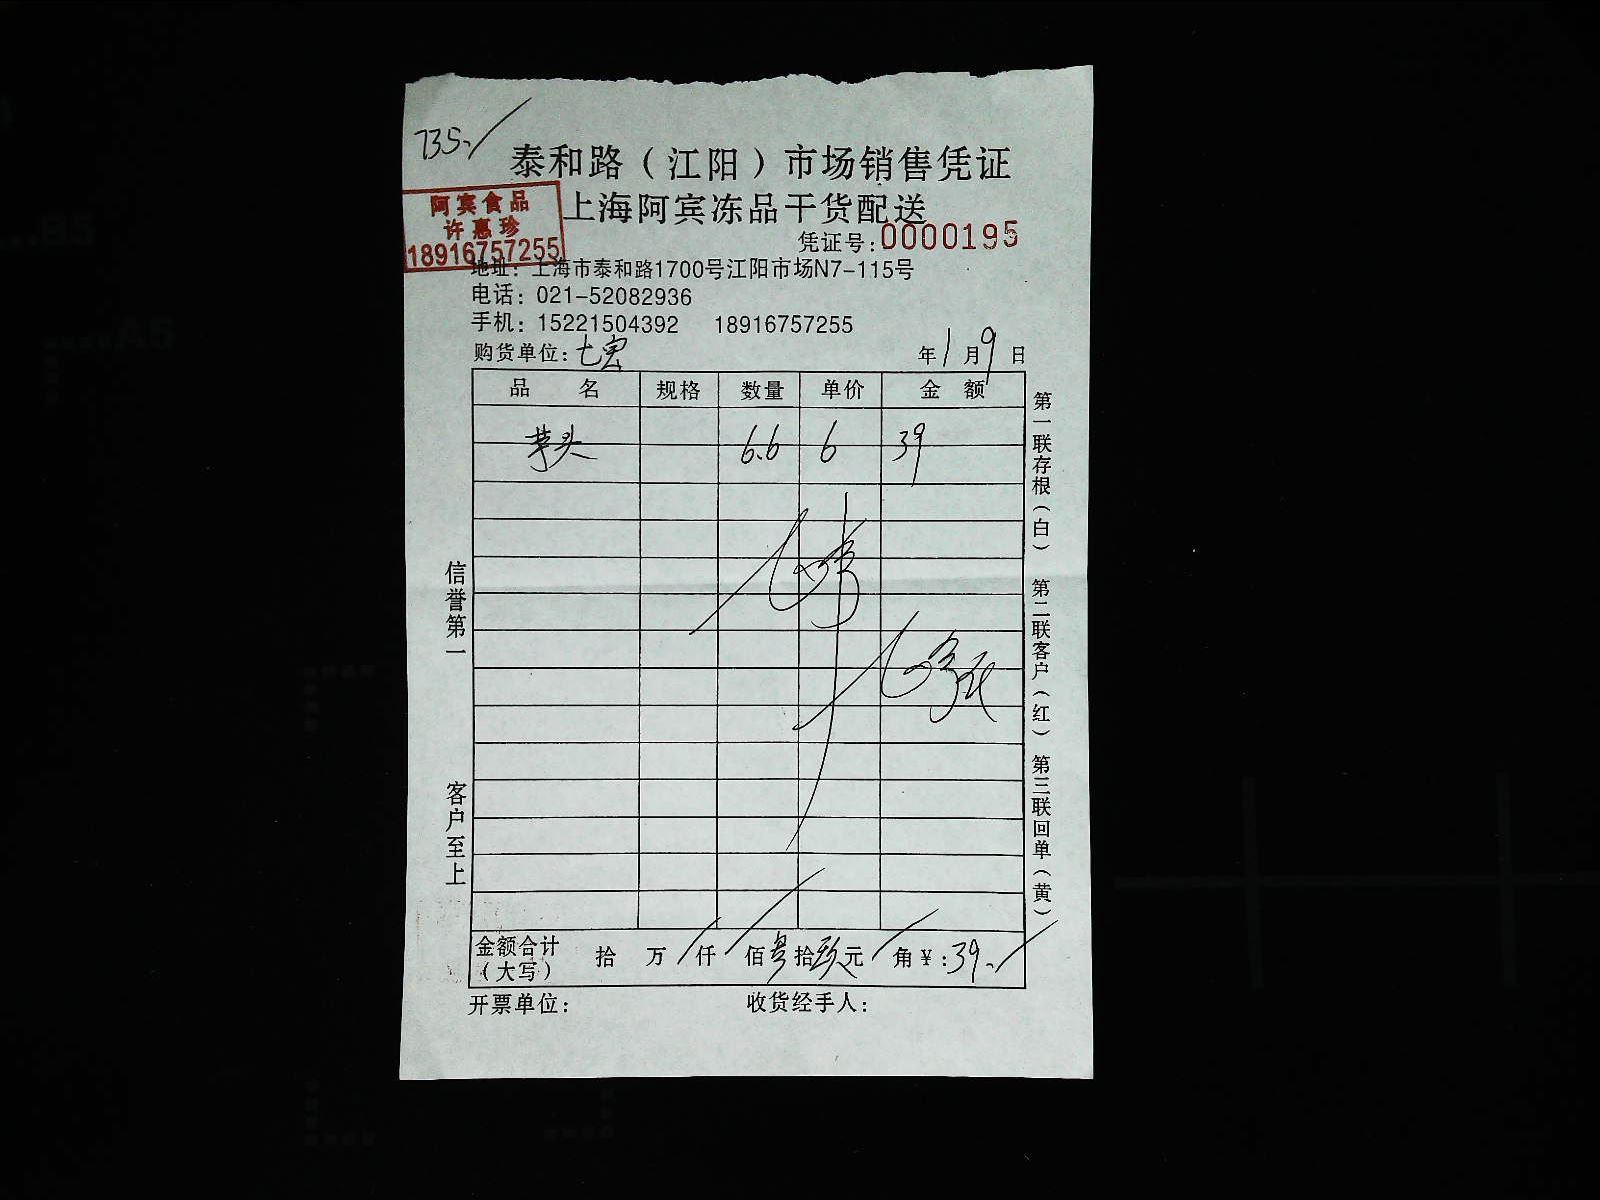 735.
泰和路（江阳）市场销售凭证
上海阿宾冻品干货配送
阿宾食品
许惠珍
18916757255
凭证号：0000195
地址：上海市泰和路1700号江阳市场N7-115号
电话：021-52082936
手机：15221504392 18916757255
购货单位：七宝 年1月9日
品名 规格 数量 单价 金额
芋头 6.6 6 39
信誉第一 客户至上
第一联存根（白） 第二联客户（红） 第三联回单（黄）
金额合计（大写） 拾 万 仟 佰叁拾玖元 角¥：39.
开票单位： 收货经手人：